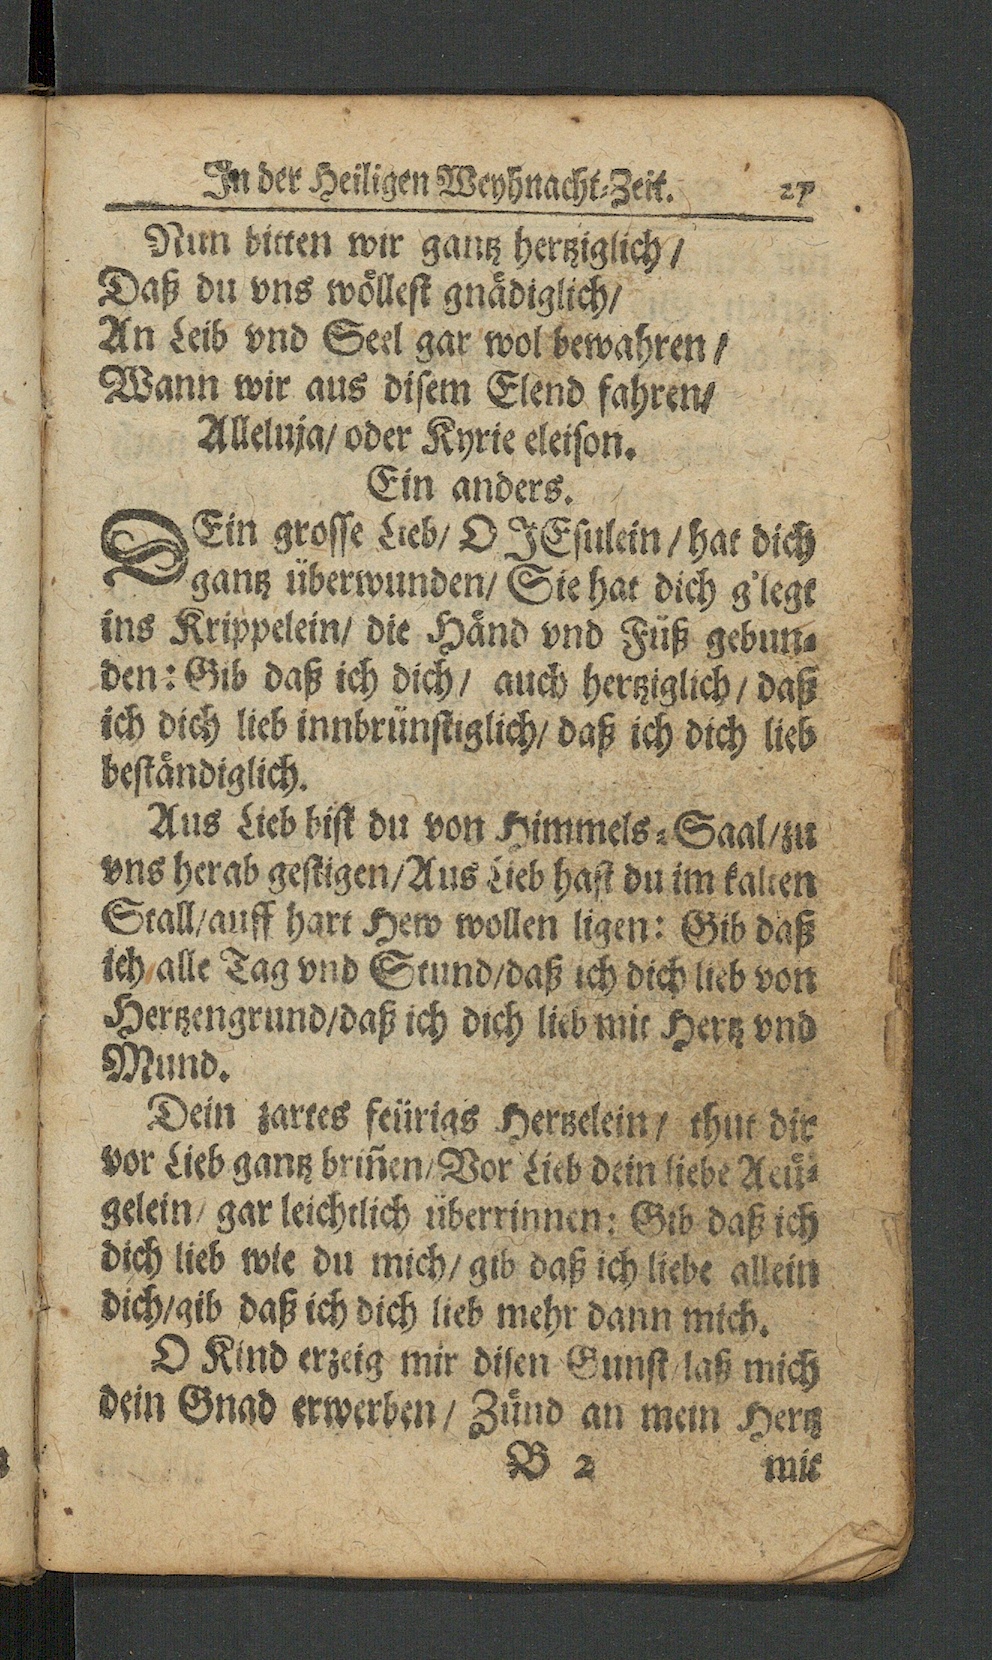 In der Heiligen Weyhnacht-Zeit. 27
Nun bitten wir gantz hertziglich /
Daß du vns wöllest gnädiglich/
An Leib vnd Seel gar wol bewahren /
Wann wir aus disem Elend fahren/
Alleluja/ oder Kyrie eleison.
Ein anders.
DEin grosse Lieb/ O JEsulein / hat dich
gantz überwunden/ Sie hat dich g'legt
ins Krippelein/ die Händ vnd Füß gebun-
den: Gib daß ich dich/ auch hertziglich/ daß
ich dich lieb innbrünstiglich/ daß ich dich lieb
beständiglich.
Aus Lieb bist du von Himmels-Saal/zu
vns herab gestigen/Aus Lieb hast du im kalten
Stall/auff hart Hew wollen ligen: Gib daß
ich alle Tag vnd Stund/daß ich dich lieb von
Hertzengrund/daß ich dich lieb mit Hertz vnd
Mund.
Dein zartes feürigs Hertzelein/ thut dir
vor Lieb gantz briñen/Vor Lieb dein liebe Aeü-
gelein/ gar leichtlich überrinnen: Gib daß ich
dich lieb wie du mich/ gib daß ich liebe allein
dich/gib daß ich dich lieb mehr dann mich.
O Kind erzeig mir disen Gunst/laß mich
dein Gnad erwerben/ Zünd an mein Hertz
B 2 mit